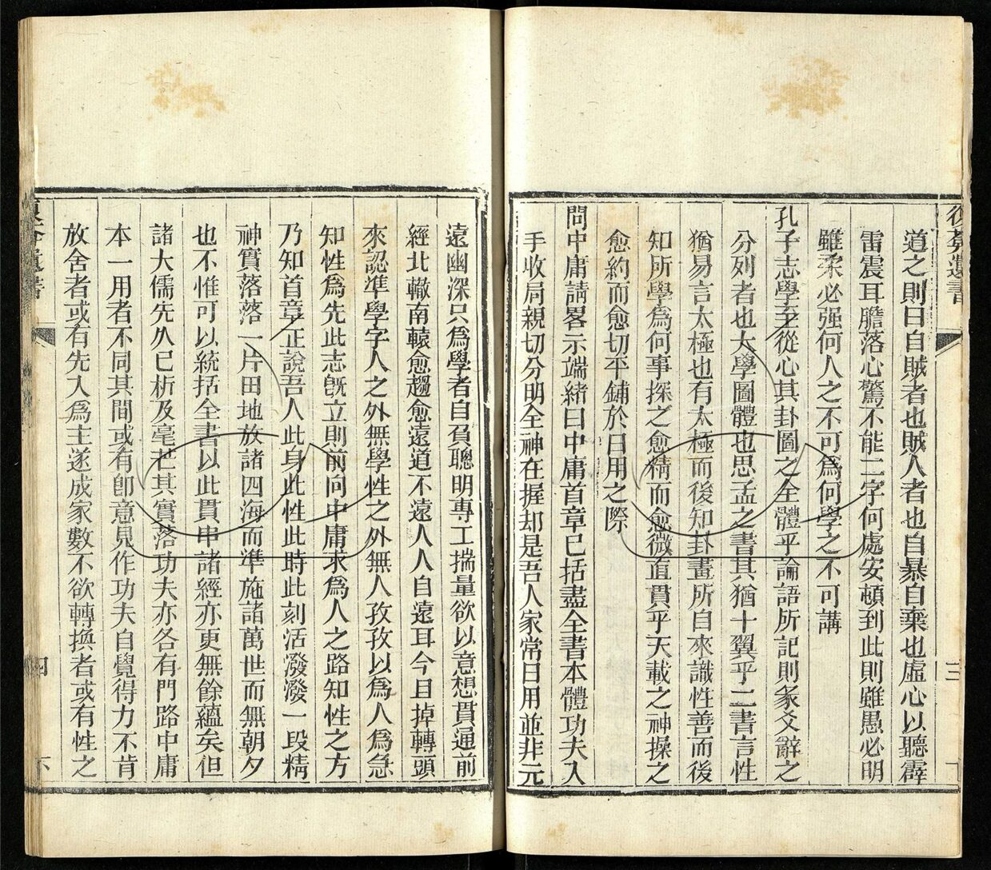 復齋遺書
三
道之則曰自賊者也賊人者也自暴自棄也虛心以聽霹
雷震耳膽落心驚不能二字何處安頓到此則雖愚必明
雖柔必强何人之不可爲何學之不可講
孔子志學至從心其卦圖之全體乎論語所記則彖爻辭之
分列者也大學圖體也思孟之書其猶十翼乎二書言性
猶易言太極也有太極而後知卦畫所自來識性善而後
知所學爲何事探之愈精而愈微直貫乎天載之神操之
愈約而愈切平鋪於日用之際
問中庸請畧示端緒曰中庸首章已括盡全書本體功夫入
手收局親切分明全神在握却是吾人家常日用並非元
遠幽深只爲學者自負聰明專工揣量欲以意想貫通前
經北轍南轅愈趨愈遠道不遠人人自遠耳今且掉轉頭
來認準學字人之外無學性之外無人孜孜以爲人爲急
知性爲先此志旣立則前向中庸求爲人之路知性之方
乃知首章正說吾人此身此性此時此刻活潑潑一段精
神實落落一片田地放諸四海而準施諸萬世而無朝夕
也不惟可以統括全書以此貫串諸經亦更無餘蘊矣但
諸大儒先久已析及毫芒其實落功夫亦各有門路中庸
本一用者不同其間或有卽意見作功夫自覺得力不肯
放舍者或有先入爲主遂成家數不欲轉換者或有性之
四